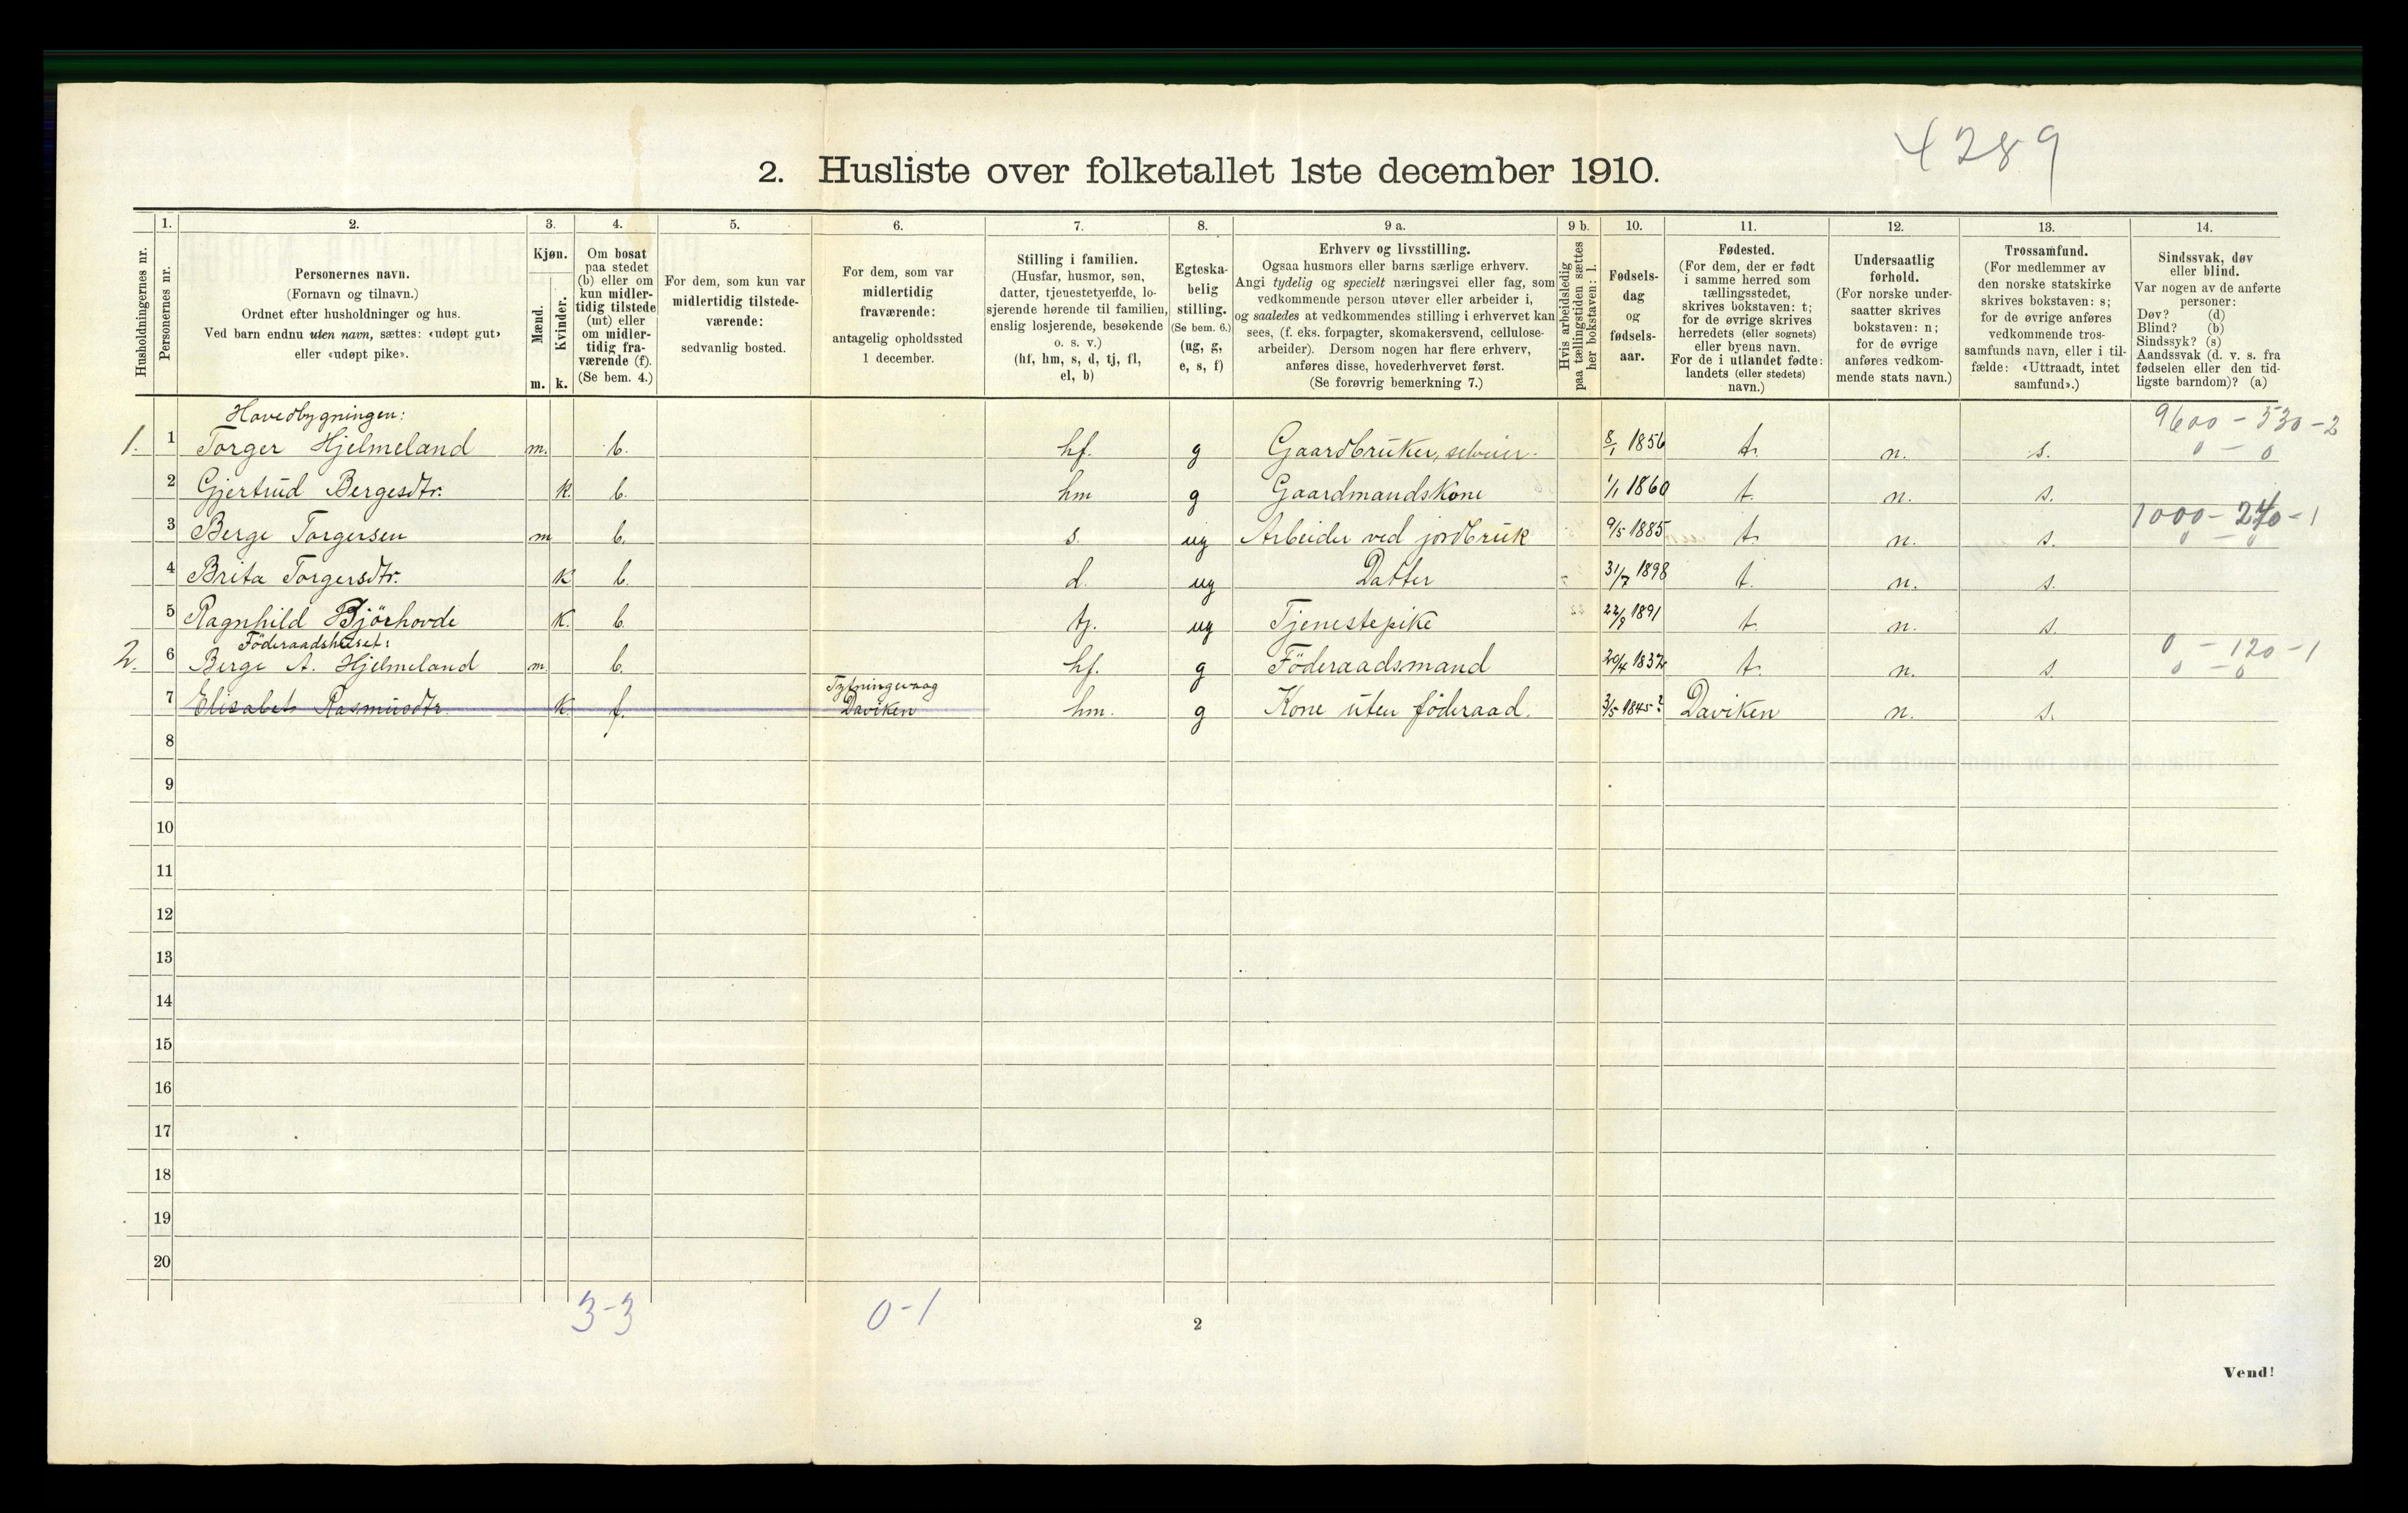 4289
2. Husliste over folketallet 1ste december 1910.
Husholdningernes nr.
1.
Personernes nr.
2.
Personernes navn.
(Fornavn og tilnavn.)
Ordnet efter husholdninger og hus.
Ved barn endnu uten navn, sættes: «udøpt gut»
eller «udøpt pike».
3.
Kjøn.
Mænd.
Kvinder.
m. k.
4.
Om bosat
paa stedet
(b) eller om
kun midler-
tidig tilstede
(mt) eller
om midler-
tidig fra-
værende (f).
(Se bem. 4.)
5.
For dem, som kun var
midlertidig tilstede-
værende:
sedvanlig bosted.
6.
For dem, som var
midlertidig
fraværende:
antagelig opholdssted
1 december.
7.
Stilling i familien.
(Husfar, husmor, søn,
datter, tjenestetyende, lo-
sjerende hørende til familien,
enslig losjerende, besøkende
o. s. v.)
(hf, hm, s, d, tj, fl,
el, b)
8.
Egteska-
belig
stilling.
(Se bem. 6.)
(ug, g,
e, s, f)
9 a.
Erhverv og livsstilling.
Ogsaa husmors eller barns særlige erhverv.
Angi tydelig og specielt næringsvei eller fag, som
vedkommende person utøver eller arbeider i,
og saaledes at vedkommendes stilling i erhvervet kan
sees, (f. eks. forpagter, skomakersvend, cellulose-
arbeider). Dersom nogen har flere erhverv,
anføres disse, hovederhvervet først.
(Se forøvrig bemerkning 7.)
9 b.
Hvis arbeidsledig
paa tællingstiden sættes
her bokstaven: l.
10.
Fødsels-
dag
og
fødsels-
aar.
11.
Fødested.
(For dem, der er født
i samme herred som
tællingsstedet,
skrives bokstaven: t;
for de øvrige skrives
herredets (eller sognets)
eller byens navn.
For de i utlandet fødte:
landets (eller stedets)
navn.)
12.
Undersaatlig
forhold.
(For norske under-
saatter skrives
bokstaven: n;
for de øvrige
anføres vedkom-
mende stats navn.)
13.
Trossamfund.
(For medlemmer av
den norske statskirke
skrives bokstaven: s;
for de øvrige anføres
vedkommende tros-
samfunds navn, eller i til-
fælde: «Uttraadt, intet
samfund».)
14.
Sindssvak, døv
eller blind.
Var nogen av de anførte
personer:
Døv? (d)
Blind? (b)
Sindssyk? (s)
Aandssvak (d. v. s. fra
fødselen eller den tid-
ligste barndom)? (a)
Hovedbygningen: 9600 - 530 - 2
1. 1 Torger Hjelmeland m. b. hf. g Gaardbruker, selveier. 8/1 1856 t. n. s. 0 - 0
2 Gjertrud Bergesdtr. k. b. hm g Gaardmandskone 1/1 1860 t. n. s.
1000 - 240 - 1
3 Berge Torgersen m b. s. ug Arbeider ved jordbruk 9/5 1885 t. n. s. 0 - 0
4 Brita Torgersdtr. k b. d. ug Datter 31/7 1898 t. n. s.
5 Ragnhild Bjørhovde k. b. tj. ug Tjenestepike 22/9 1891 t. n. s.
Föderaadshuset: 0 - 120 - 1
2. 6 Berge A. Hjelmeland m. b. hf. g Föderaadsmand 20/4 1832 t. n. s. 0 - 0
7 Elisabet Rasmusdtr. k. f. Daviken hm. g Kone uten föderaad. 3/5 1845? Daviken n. s.
8
9
10
11
12
13
14
15
16
17
18
19
20
3-3 0-1
2
Vend!